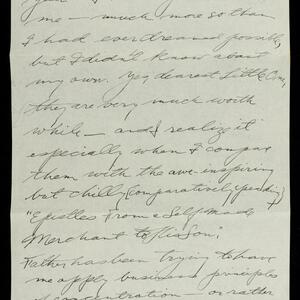 me — much more so than
I had ever dreamed possible,
but I didn't know about
my own. Yes, dearest Little One,
they are very much worth
while — and I realize it
especially when I compare
them with the awe-inspiring
but chilly (comparatively speaking)
"Epistles from a Self-Made
Merchant to His Son".
Father has been trying to have
me apply business principles
of concentration — or rather